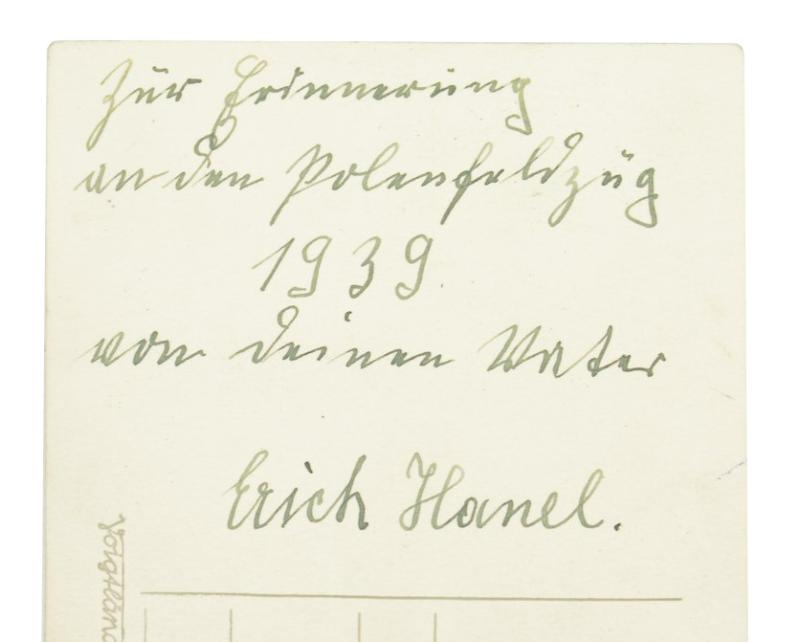 Zur Erinnerung
an den Polenfeldzug
1939.
von deinen Vater
Erich Hanel.
Voigtländ